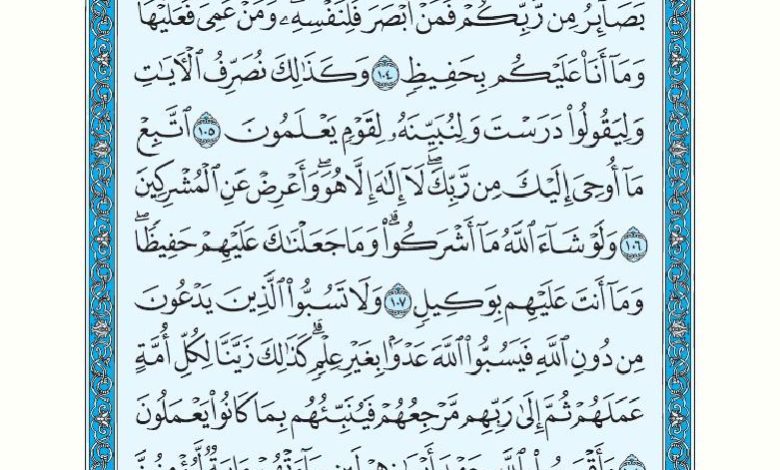 بَصَآئِرُ مِن رَّبِّكُمْ فَمَنْ أَبْصَرَ فَلِنَفْسِهِۦ وَمَنْ عَمِىَ فَعَلَيْهَا
وَمَآ أَنَا۠ عَلَيْكُم بِحَفِيظٍ ١٠٤ وَكَذَٰلِكَ نُصَرِّفُ ٱلْءَايَٰتِ
وَلِيَقُولُوا۟ دَرَسْتَ وَلِنُبَيِّنَهُۥ لِقَوْمٍ يَعْلَمُونَ ١٠٥ ٱتَّبِعْ
مَآ أُوحِىَ إِلَيْكَ مِن رَّبِّكَ ۖ لَآ إِلَٰهَ إِلَّا هُوَ ۖ وَأَعْرِضْ عَنِ ٱلْمُشْرِكِينَ
١٠٦ وَلَوْ شَآءَ ٱللَّهُ مَآ أَشْرَكُوا۟ ۗ وَمَا جَعَلْنَٰكَ عَلَيْهِمْ حَفِيظًا ۖ
وَمَآ أَنتَ عَلَيْهِم بِوَكِيلٍ ١٠٧ وَلَا تَسُبُّوا۟ ٱلَّذِينَ يَدْعُونَ
مِن دُونِ ٱللَّهِ فَيَسُبُّوا۟ ٱللَّهَ عَدْوًۢا بِغَيْرِ عِلْمٍ ۗ كَذَٰلِكَ زَيَّنَّا لِكُلِّ أُمَّةٍ
عَمَلَهُمْ ثُمَّ إِلَىٰ رَبِّهِم مَّرْجِعُهُمْ فَيُنَبِّئُهُم بِمَا كَانُوا۟ يَعْمَلُونَ